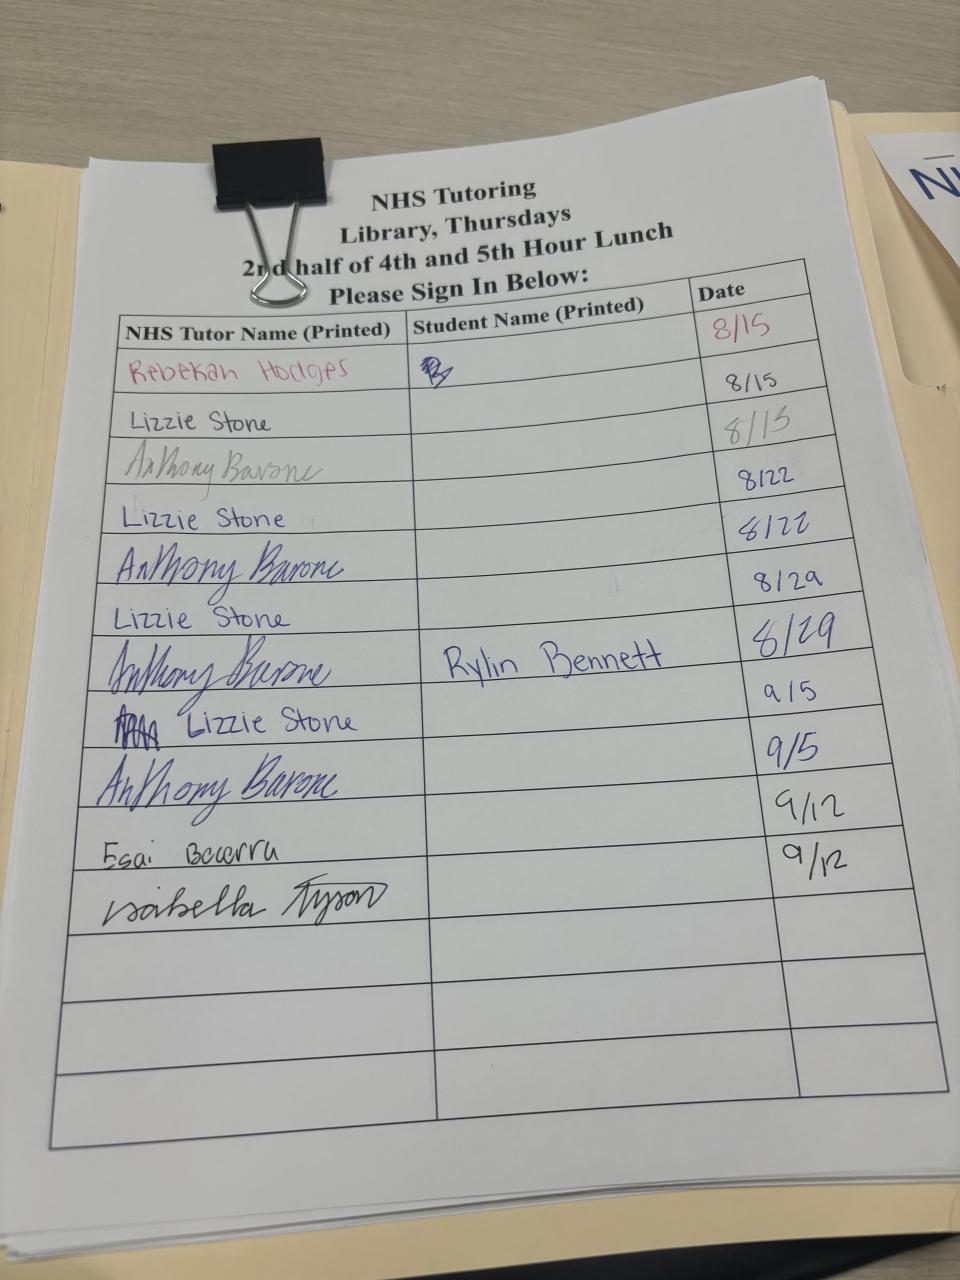 NHS Tutoring
Library, Thursdays
2nd half of 4th and 5th Hour Lunch
Please Sign In Below:
NHS Tutor Name (Printed) Student Name (Printed) Date
Rebekah Hodges 8/15
Lizzie Stone 8/15
Anthony Barone 8/15
Lizzie Stone 8/22
Anthony Barone 8/22
Lizzie Stone 8/29
Anthony Barone Rylin Bennett 8/29
Lizzie Stone 9/5
Anthony Barone 9/5
Esai Becerra 9/12
Isabella Tyson 9/12